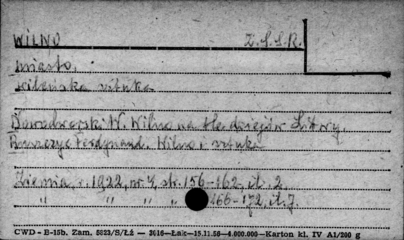 WILNO Z.S.S.R.
miasto,
wileńska sztuka
Nowodworski W. Wilno na tle dziejów Litwy.
Ruszczyc Ferdynand. Wilno i sztuka
Ziemia, r. 1922, nr. 4, str. 156-162, il. 2.
" " " " 166-172, il. 7.
CWD - E-15b, Zam. 5823/S/Łź — 3016—Łak—15.11.56—4.000.000—Karton kl. IV A1/200 g